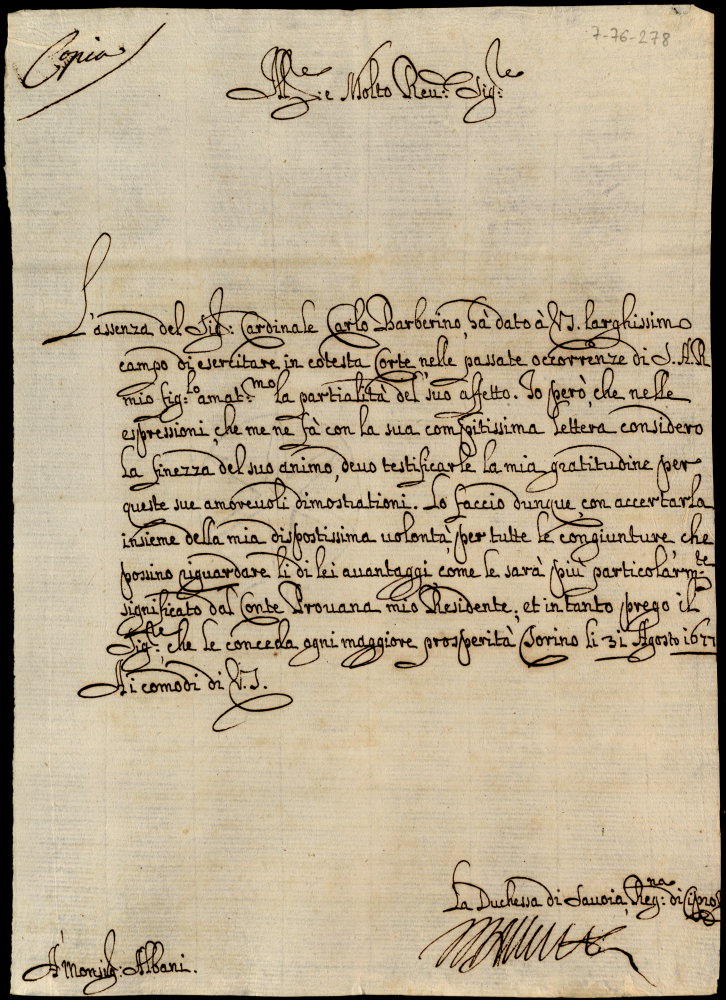 Copia
7-76-278
Ill.re e Molto Reu.do Sig.re
L'assenza del Sig.r Cardinale Carlo Barberino, hà dato à V.S. larghissimo
campo di esercitare in cotesta Corte nelle passate occorrenze di S. A R
mio fig.lo amat.mo la partialità del suo affetto. Io però, che nelle
espressioni, che me ne fà con la sua compitissima lettera considero
la finezza del suo animo, deuo testificarle la mia gratitudine per
queste sue amoreuoli dimostrationi. Lo faccio dunque, con accertarla
insieme della mia dispostissima uolontà, per tutte le congiunture che
possino riguardare li di lei auantaggi come le sarà più particolarm.te
significato dal Conte Prouana mio Residente; et in tanto prego il
Sig.re, che le conceda ogni maggiore prosperità Torino li 31 Agosto 1677
Ai comodi di V.S.
La Duchessa di Sauoia, Reg.na di Cipro
A Monsig.r Albani.